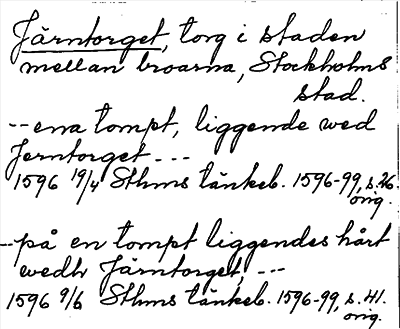 Järntorget, torg i staden
mellan broarna, Stockholms
stad.
--ena tompt, liggende wed
Jerntorget ---
1596 19/4 Sthms tänkeb. 1596-99, s. 26.
orig.
--på en tompt liggendes hårt
wedh Järntorget, ---
1596 9/6 Sthms tänkeb. 1596-99, s. 41.
orig.